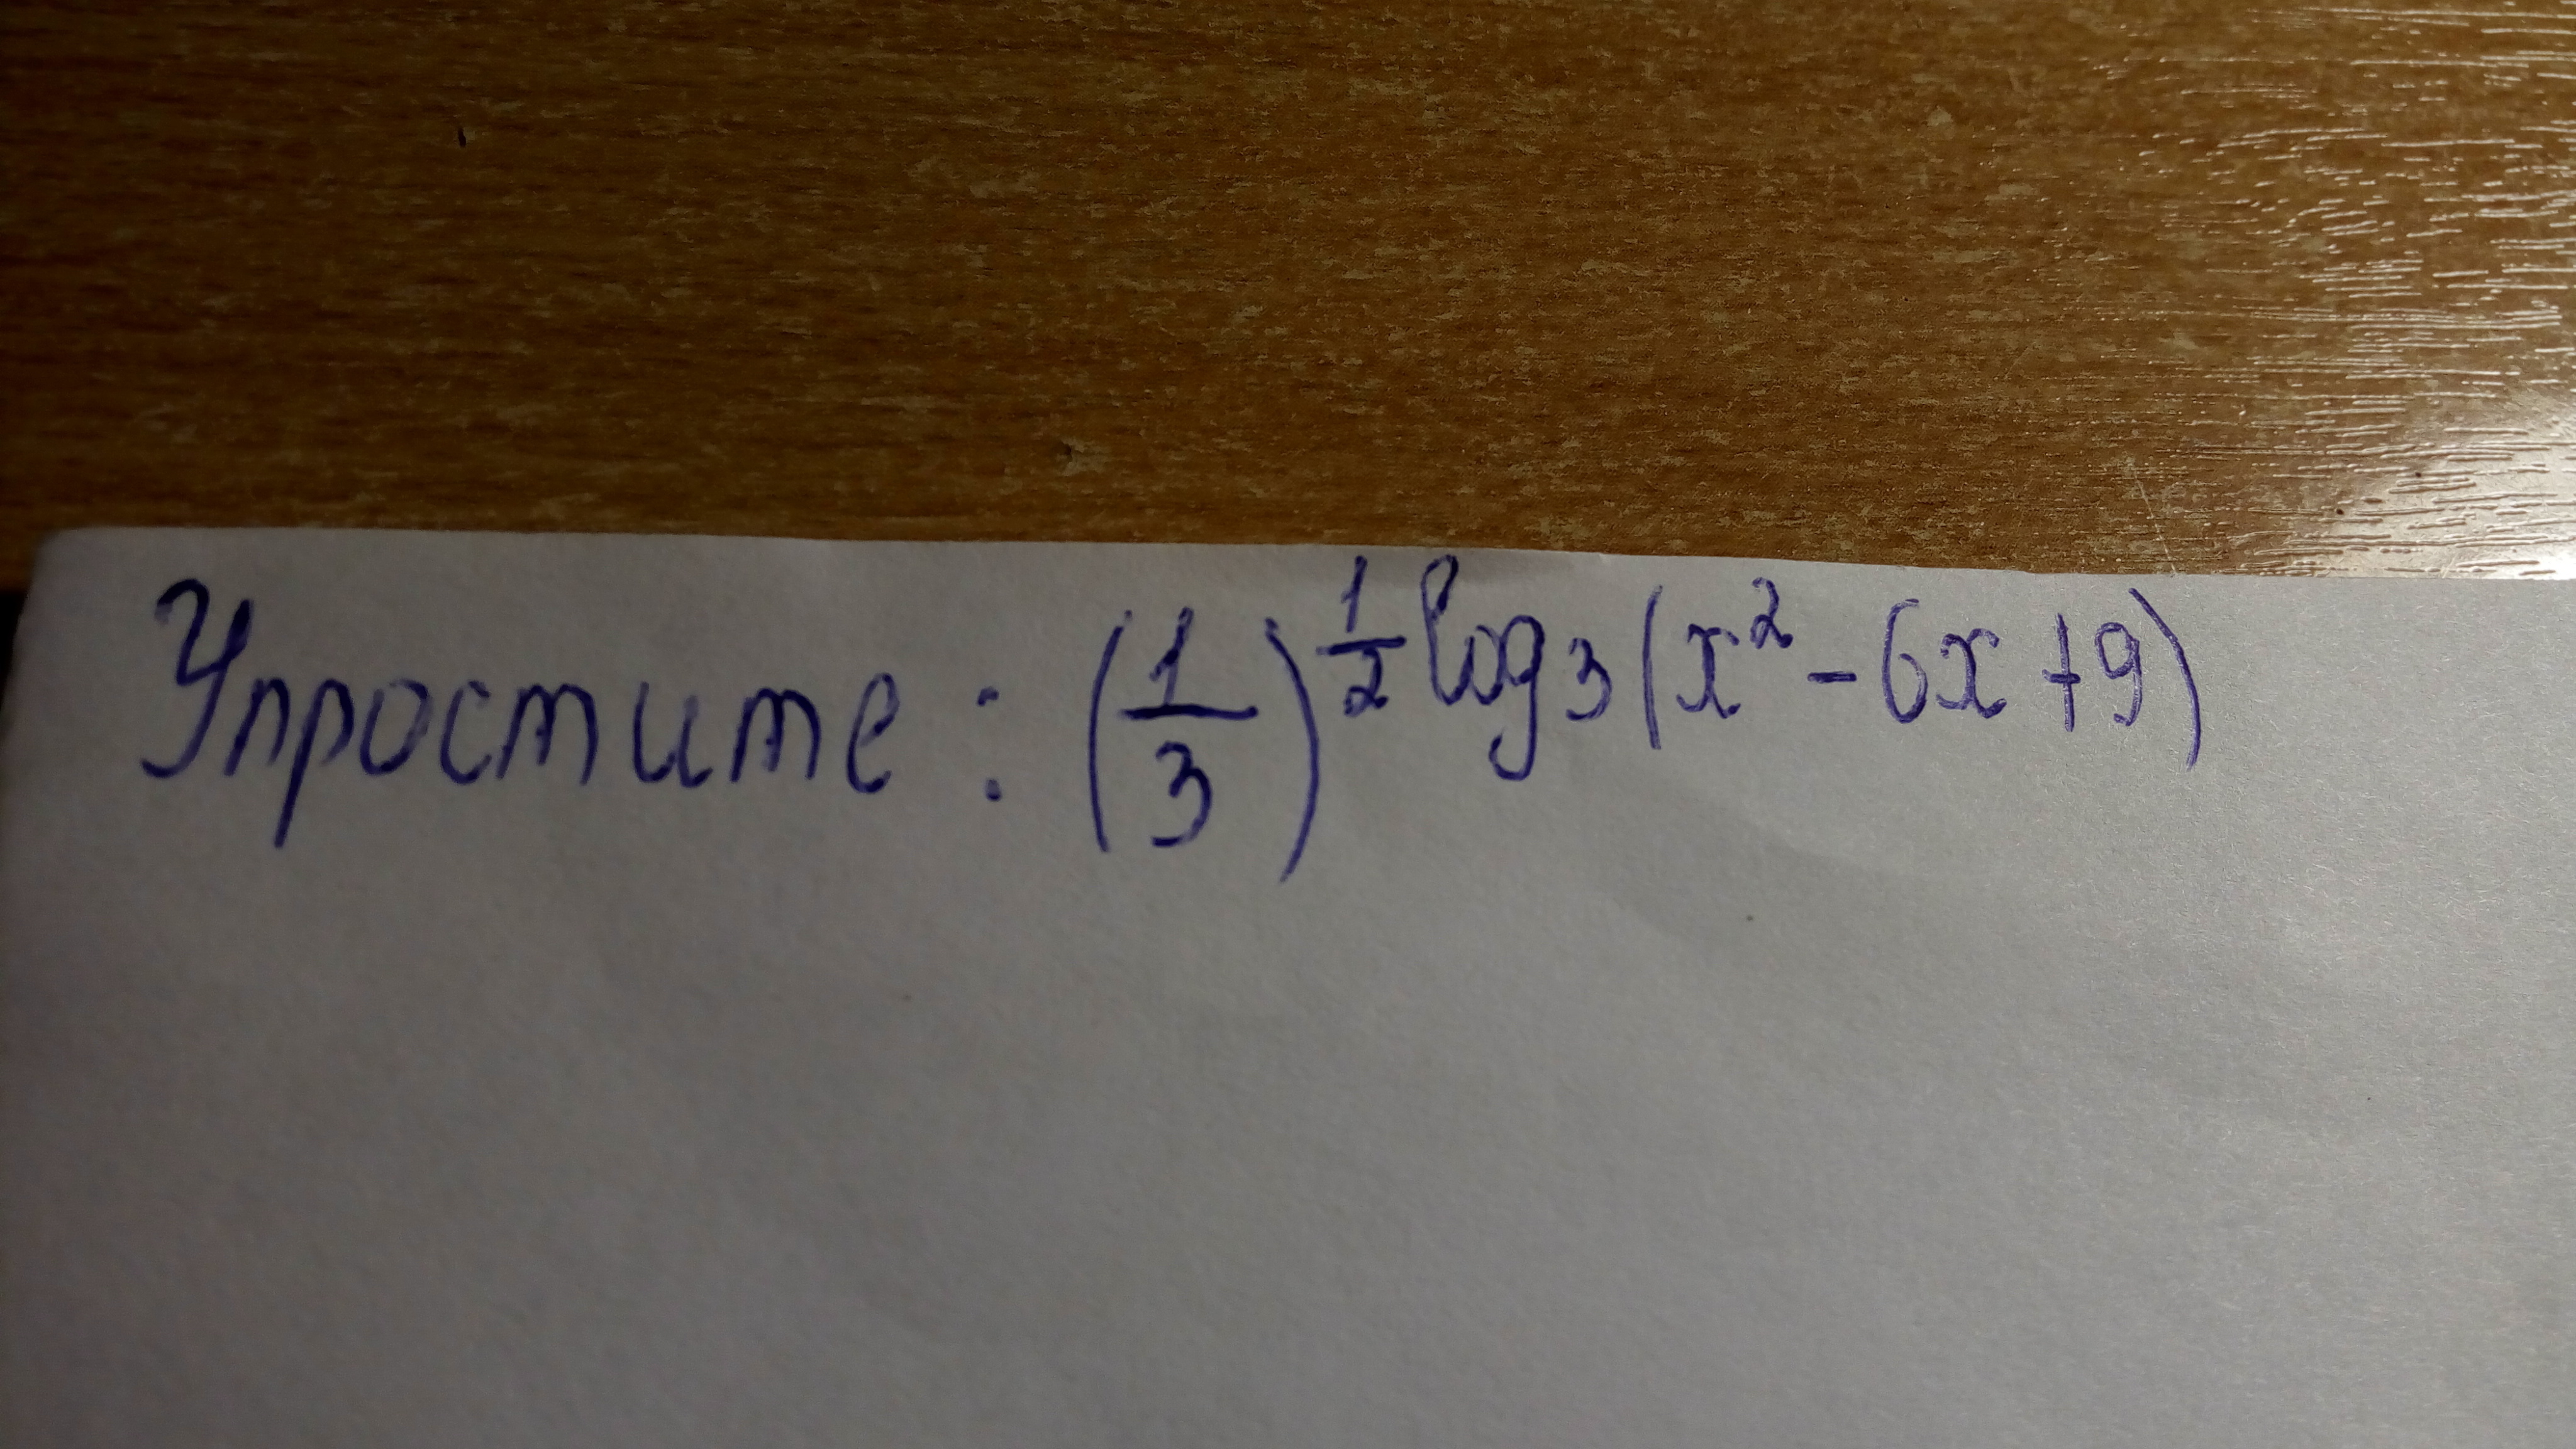 Упростите: (1/3)^(1/2 log₃(x² - 6x + 9))